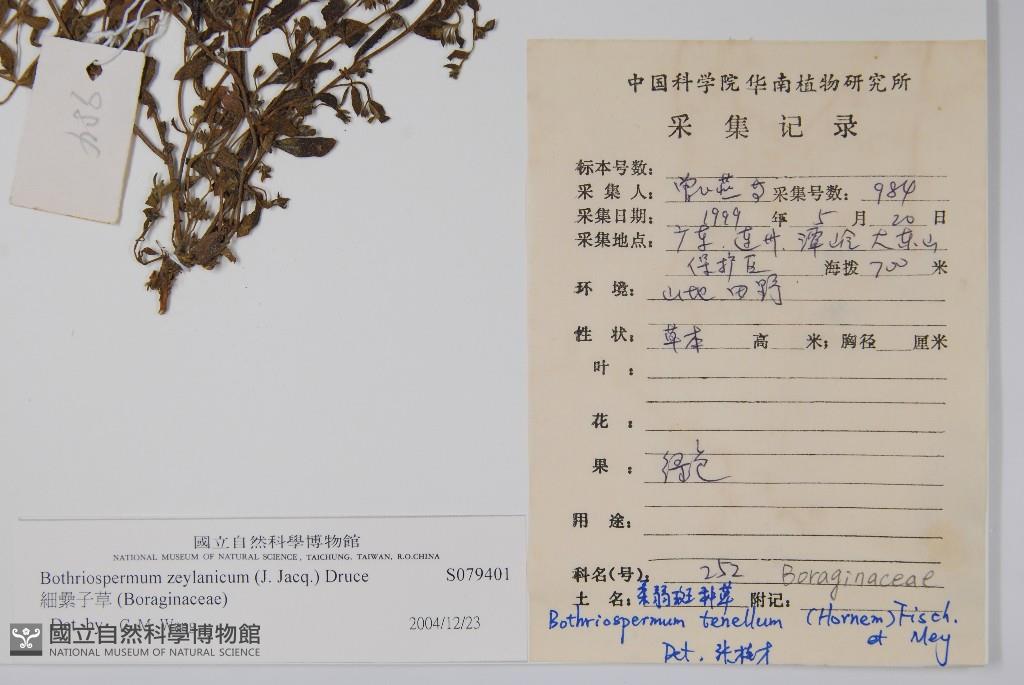 984
中国科学院华南植物研究所
采集记录
标本号数:
采集人: 采集号数: 984
采集日期: 1999 年 5 月 20 日
采集地点: 广东 连州 潭岭 大东山
保护区 海拨 700 米
环境: 山地 田野
性状: 草本 高 米; 胸径 厘米
叶:
花:
果: 绿色
用途:
科名(号): 252 Boraginaceae
土名: 柔弱斑种草 附记:
Bothriospermum tenellum (Hornem) Fisch.
et Mey
Det.
國立自然科學博物館
NATIONAL MUSEUM OF NATURAL SCIENCE, TAICHUNG, TAIWAN, R.O.CHINA
Bothriospermum zeylanicum (J. Jacq.) Druce S079401
細纍子草 (Boraginaceae)
Det. by: 2004/12/23
國立自然科學博物館
NATIONAL MUSEUM OF NATURAL SCIENCE